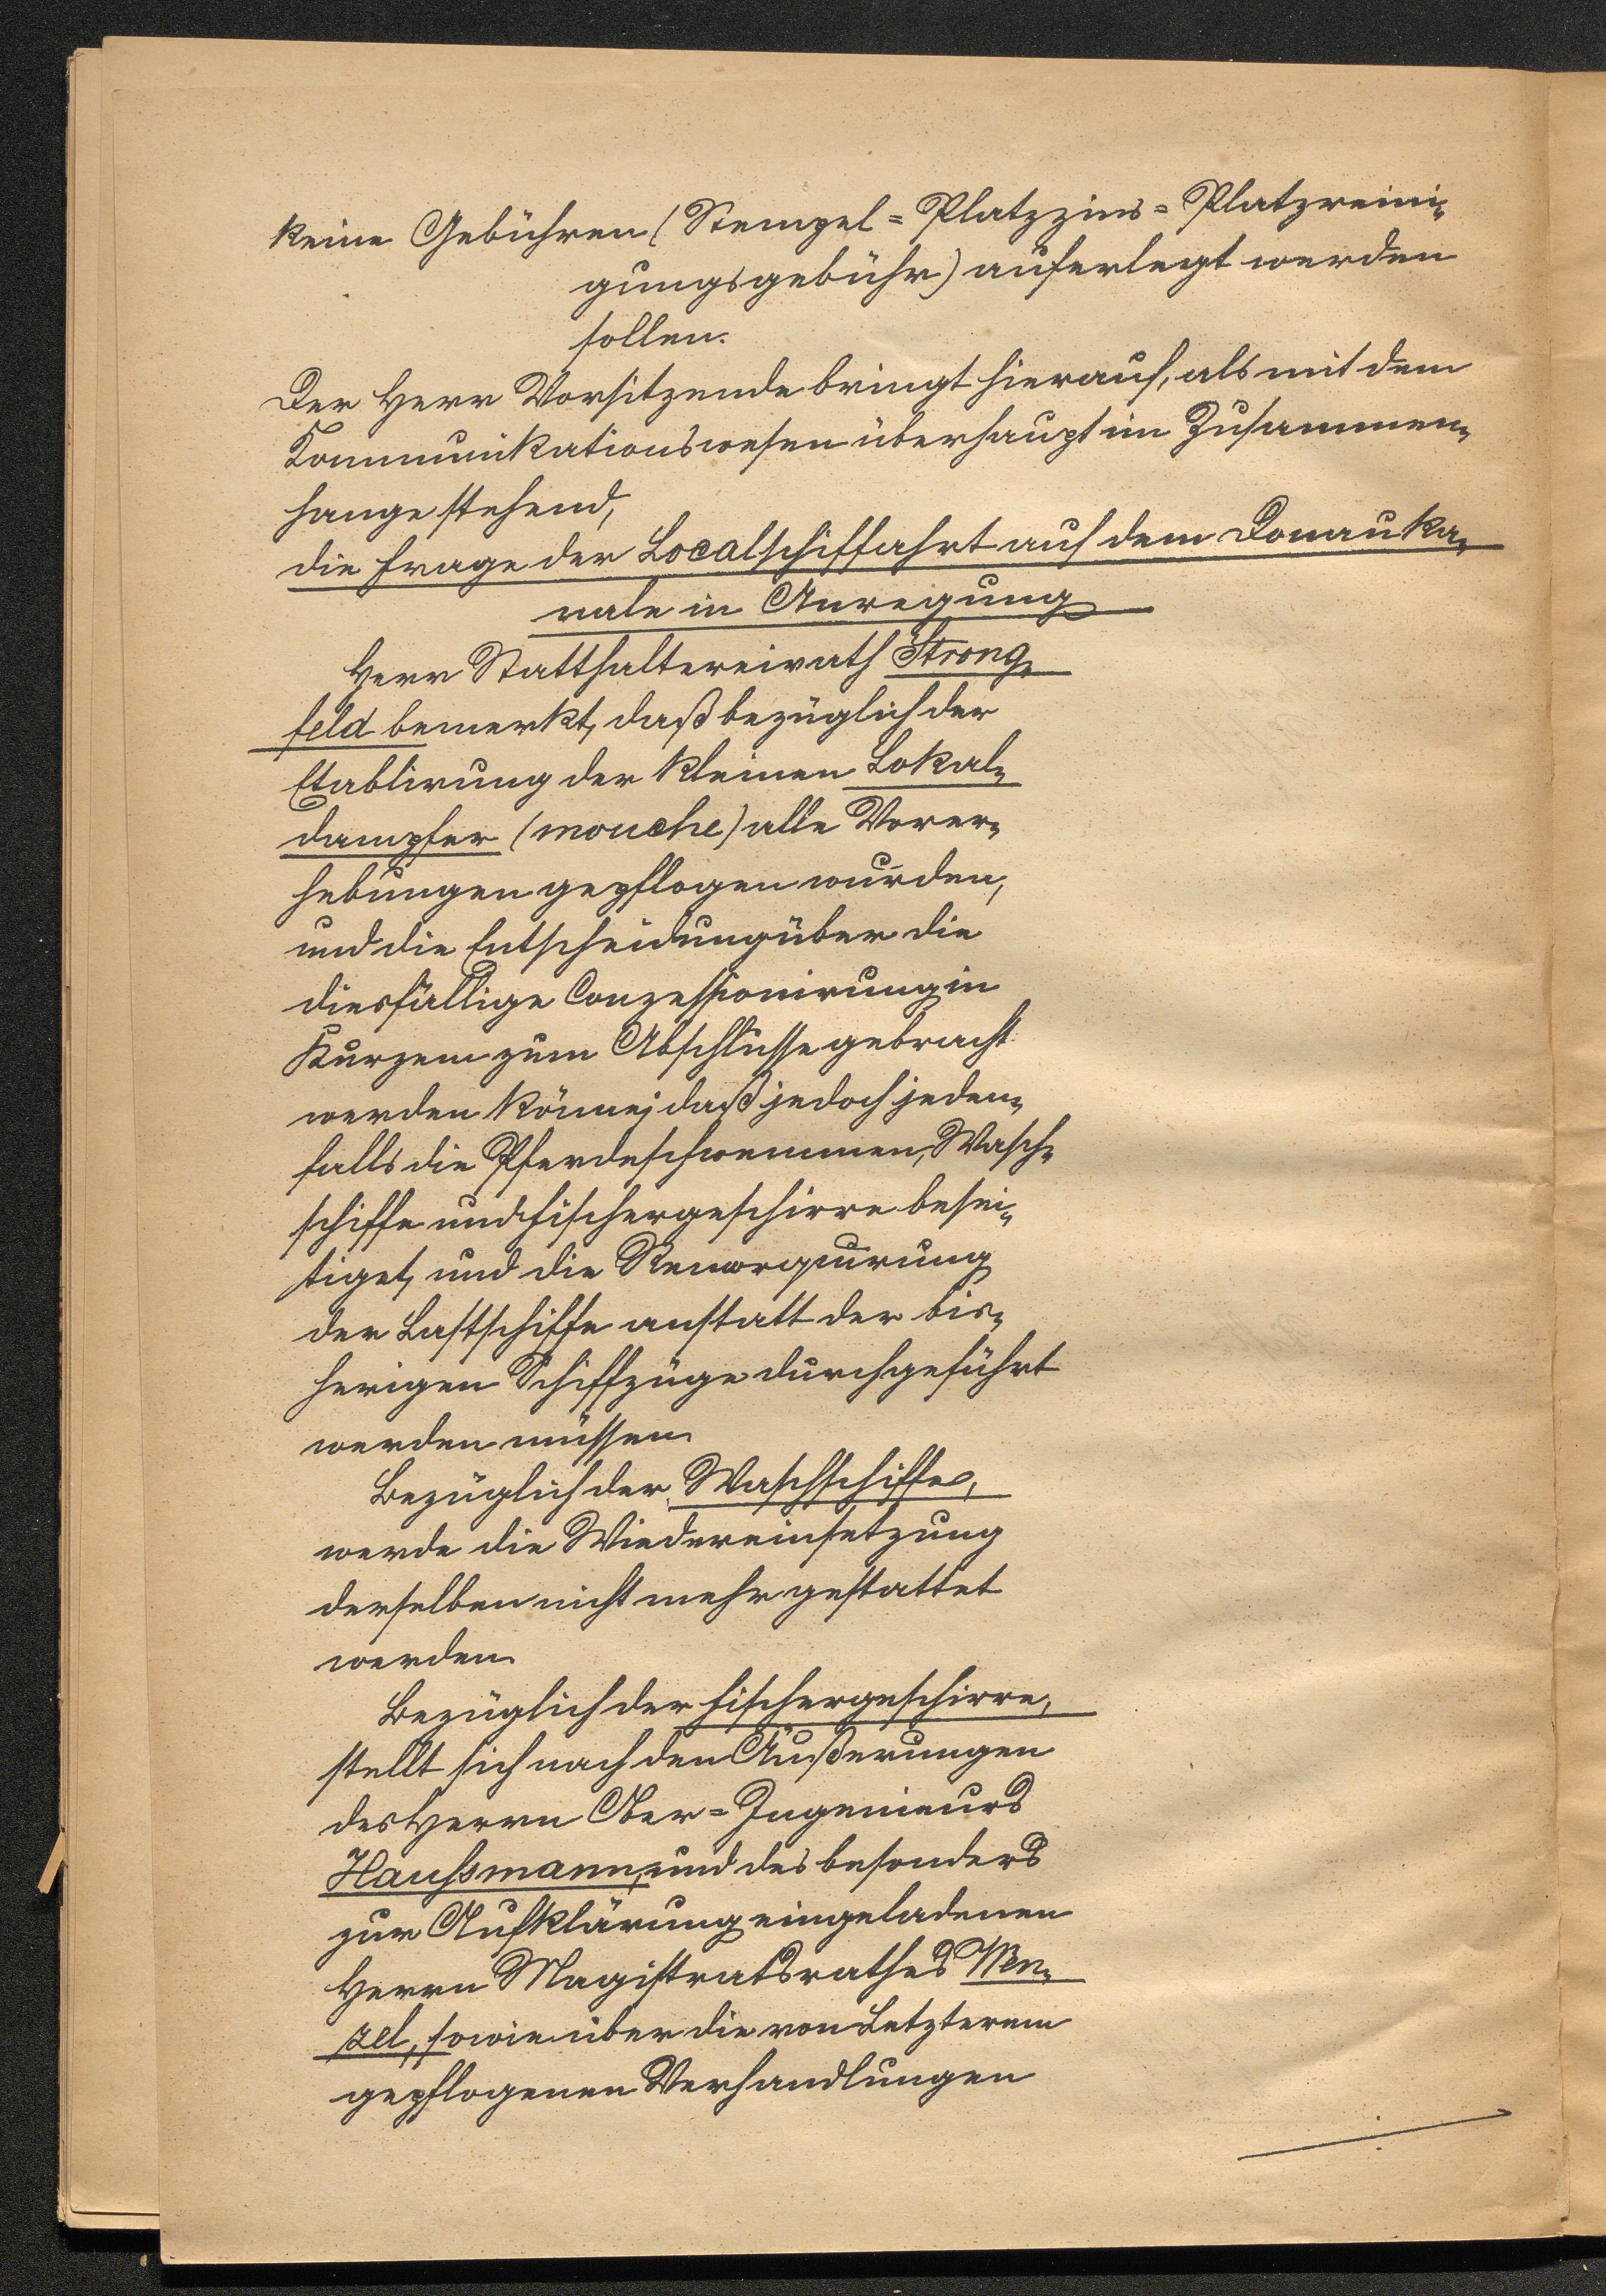 keine Gebühren (Stempel= Platzzins= Platzreini-
gungsgebühr) auferlegt werden
sollen.
Der Herr Vorsitzende bringt hierauf, als mit dem
Kommunikationswesen überhaupt im Zusammen-
hange stehend,
die Frage der Localschiffahrt auf dem Donauka-
nale in Anregung
Herr Statthaltereirath Strong-
feld bemerkt, daß bezüglich der
Etablirung der kleinen Lokal-
dampfer (mouche) alle Vorer-
hebungen gepflogen wurden,
und die Entscheidung über die
diesfällige Conzessionirung in
Kurzem zum Abschlusse gebracht
werden könne; daß jedoch jeden-
falls die Pferdeschwemmen, Wasch-
schiffe und Fischergeschirre besei-
tiget, und die Remorquirung
der Lastschiffe anstatt der bis-
herigen Schiffzüge durchgeführt
werden müssen.
Bezüglich der Waschschiffe,
werde die Wiedereinsetzung
derselben nicht mehr gestattet
werden.
Bezüglich der Fischergeschirre,
stellt sich nach den Äußerungen
des Herrn Ober=Ingenieurs
Haussmann, und des besonders
zur Aufklärung eingeladenen
Herrn Magistratsrathes Wen-
zel, sowie über die von Letzterem
gepflogenen Verhandlungen